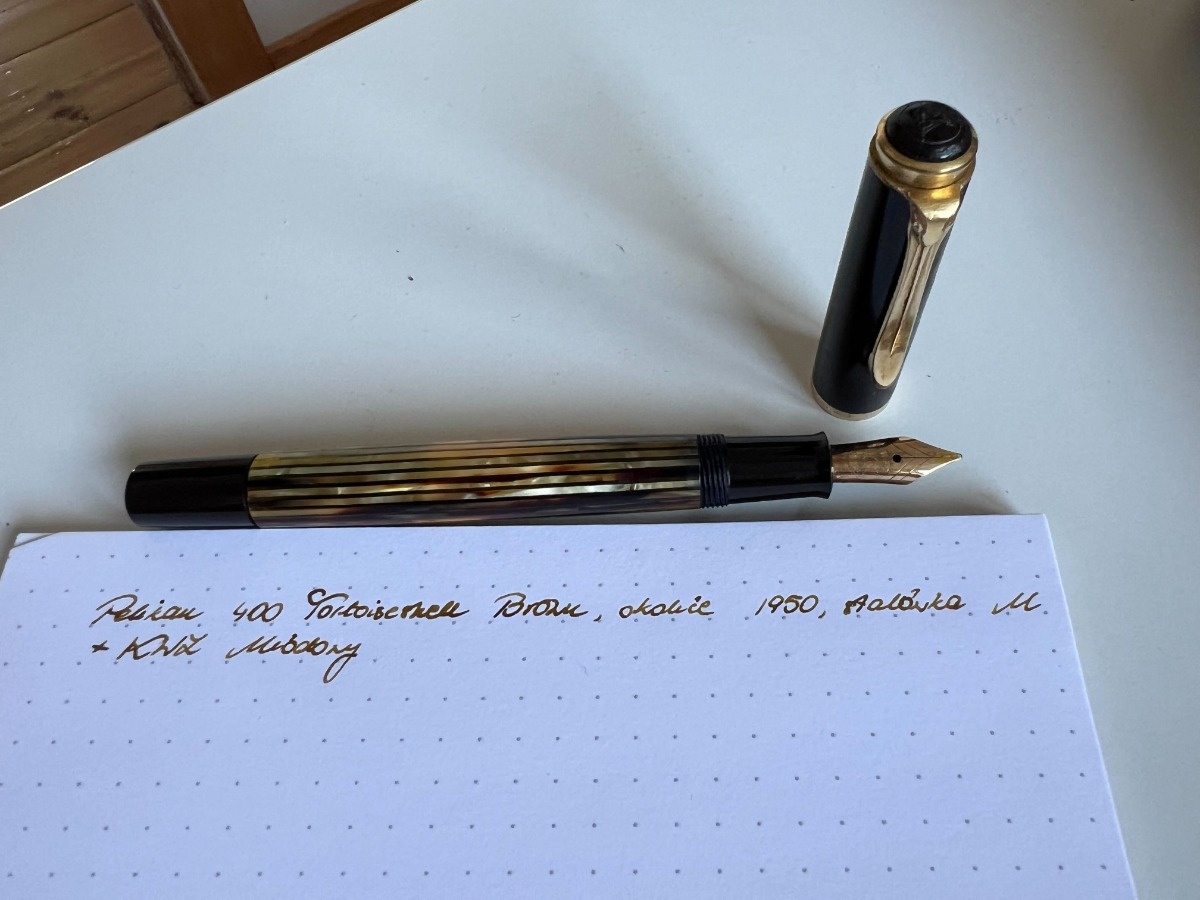 Pelikan 400 Tortoiseshell Brown, okolice 1950, stalówka M
+ KWZ Miodowy